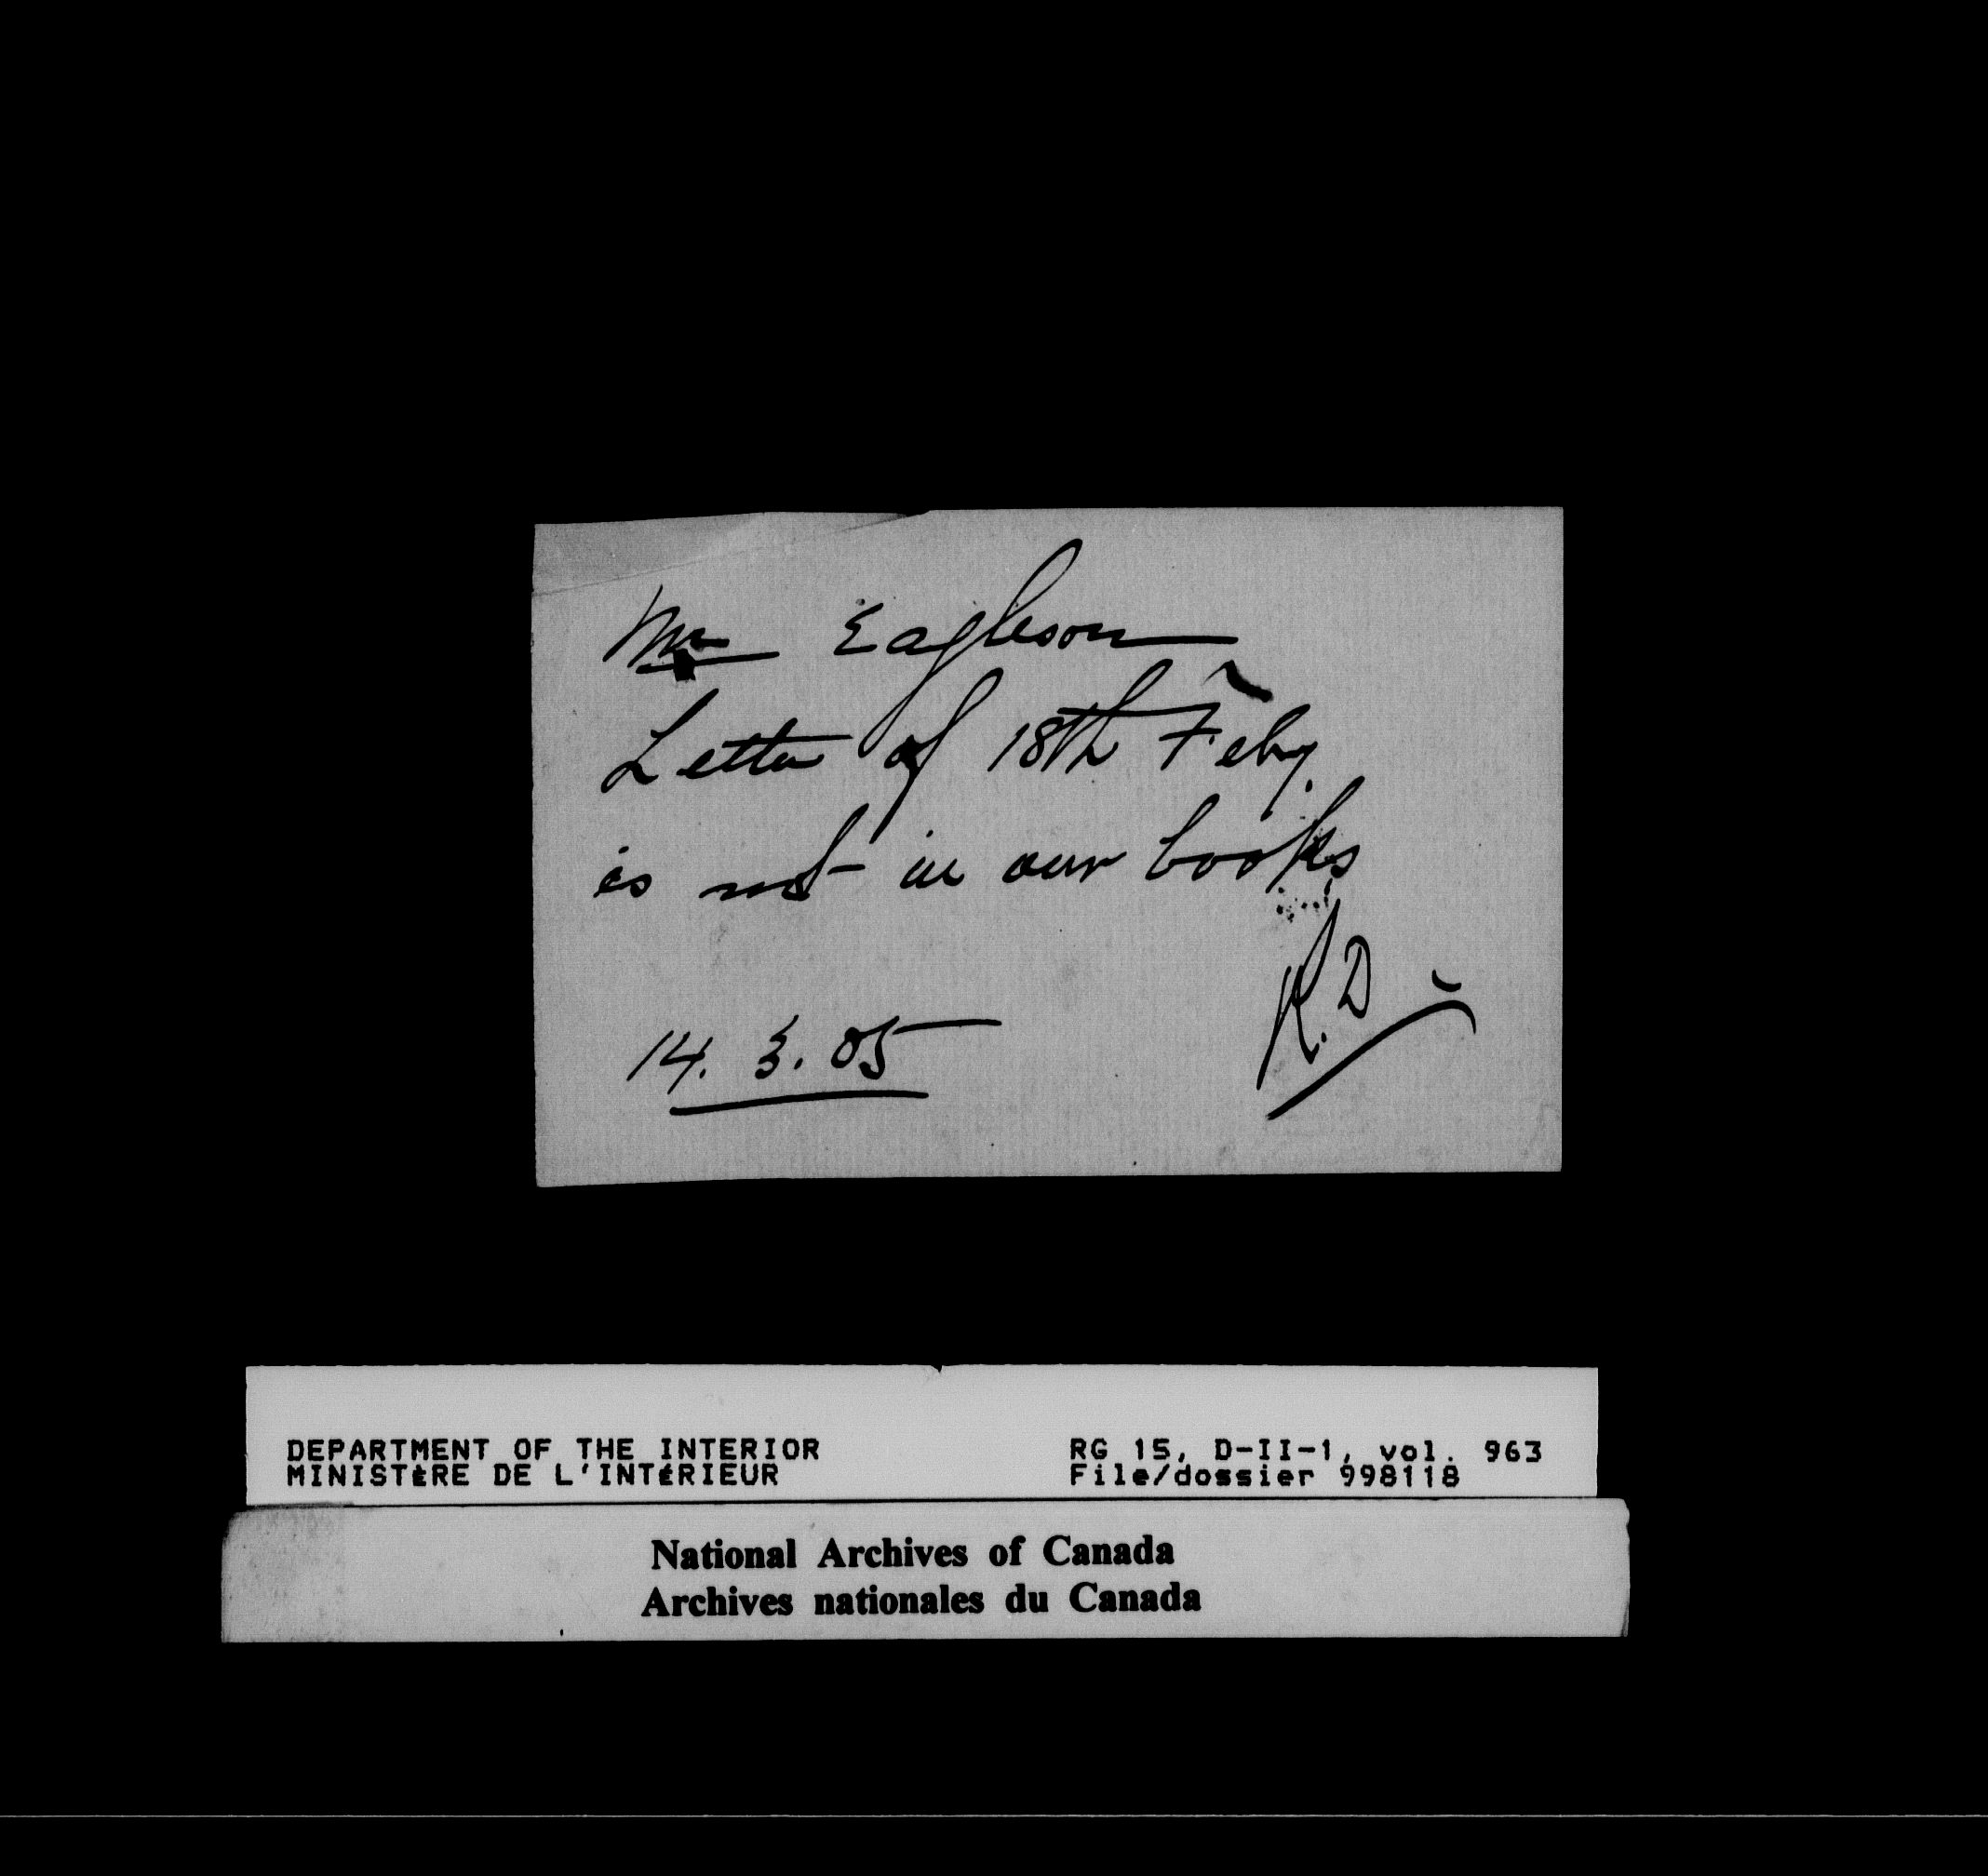 Mr Eagleson
Letter of 18th Feby
is not in our books
R.D
14. 3. 05
DEPARTMENT OF THE INTERIOR
MINISTÈRE DE L'INTÉRIEUR
RG 15, D-II-1, vol. 963
File/dossier 998118
National Archives of Canada
Archives nationales du Canada